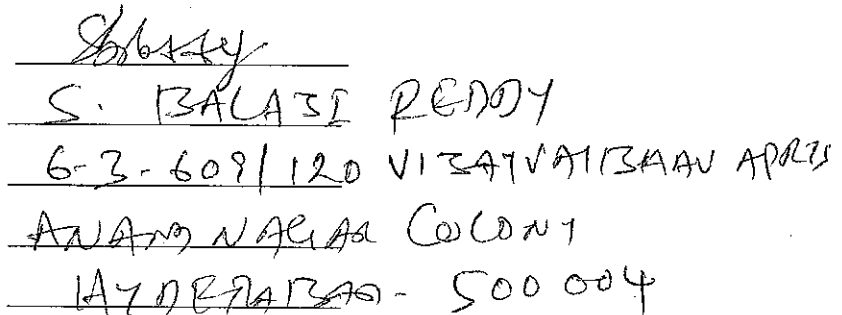 S. BALAJI REDDY
6-3-609/120 VIJAYVAIBHAV APRTS
ANAND NAGAR COLONY
HYDERABAD - 500 004